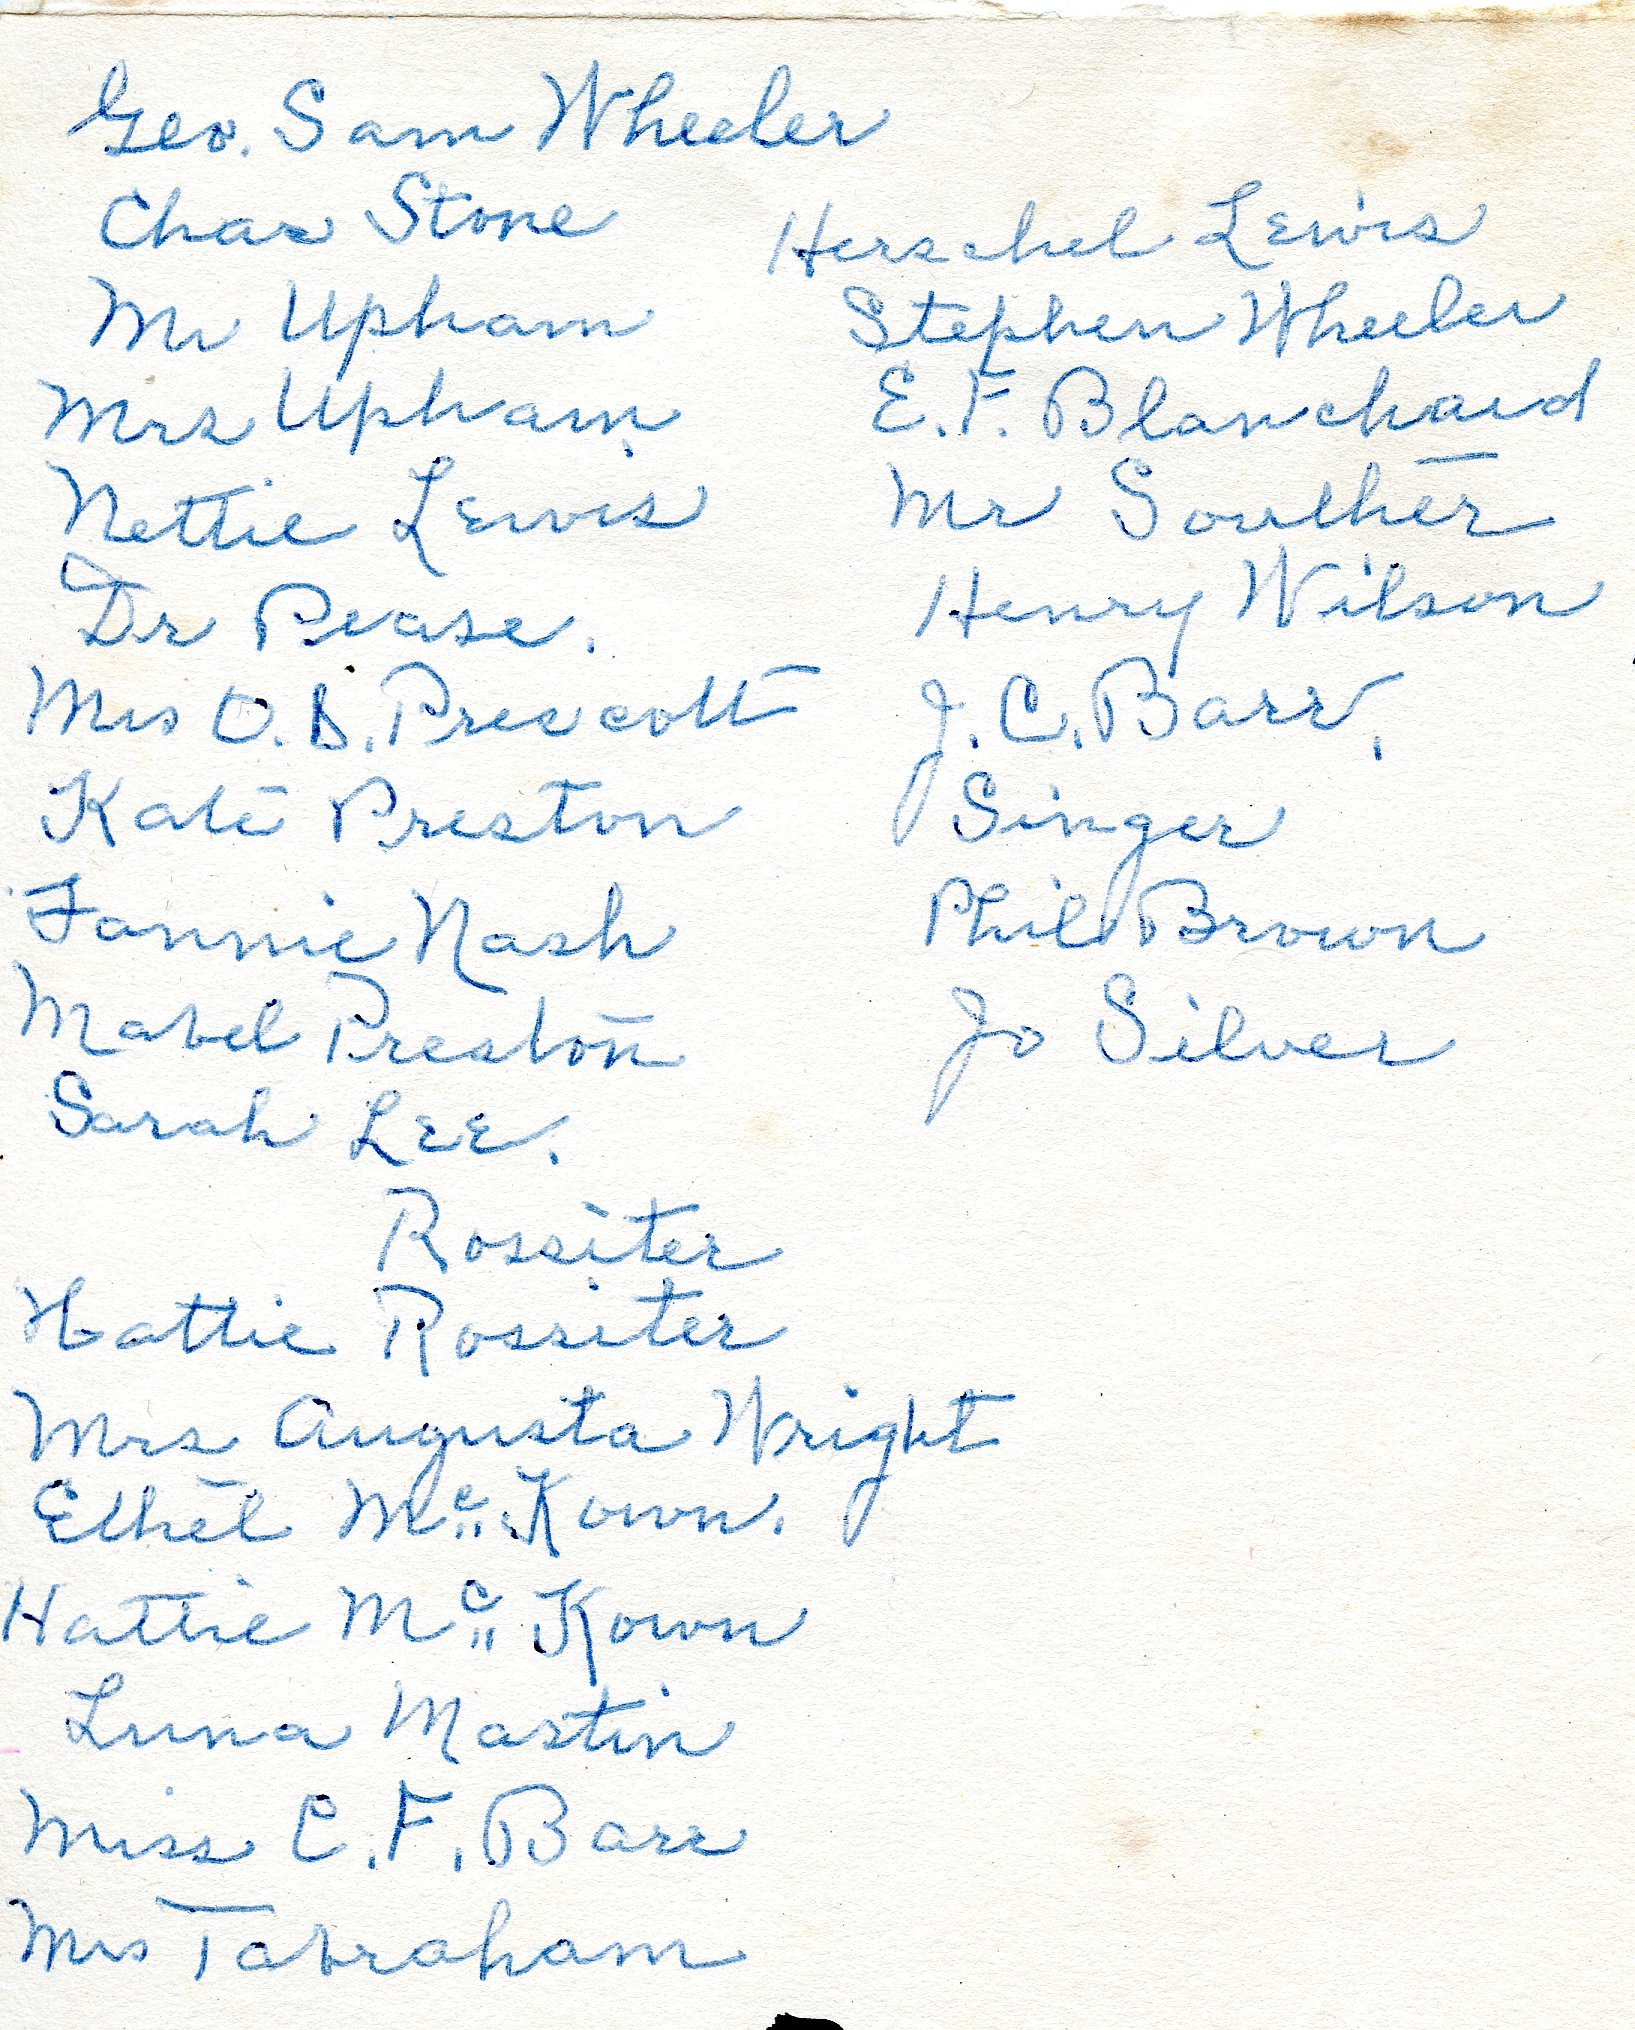 Geo. Sam Wheeler
Chas Stone
Mr Upham
Mrs Upham.
Nettie Lewis
Dr Pease.
Mrs O. D. Prescott
Kate Preston
Fannie Nash
Mabel Preston
Sarah Lee.
Rossiter
Hattie Rossiter
Mrs Augusta Wright
Ethel Mc. Kown.
Hattie Mc Kown
Luna Martin
Miss C. F. Barr
Mrs Tabraham
Herschel Lewis
Stephen Wheeler
E. F. Blanchard
Mr Souther
Henry Wilson
J. C. Barr.
Singer
Phil Brown
Jo Silver